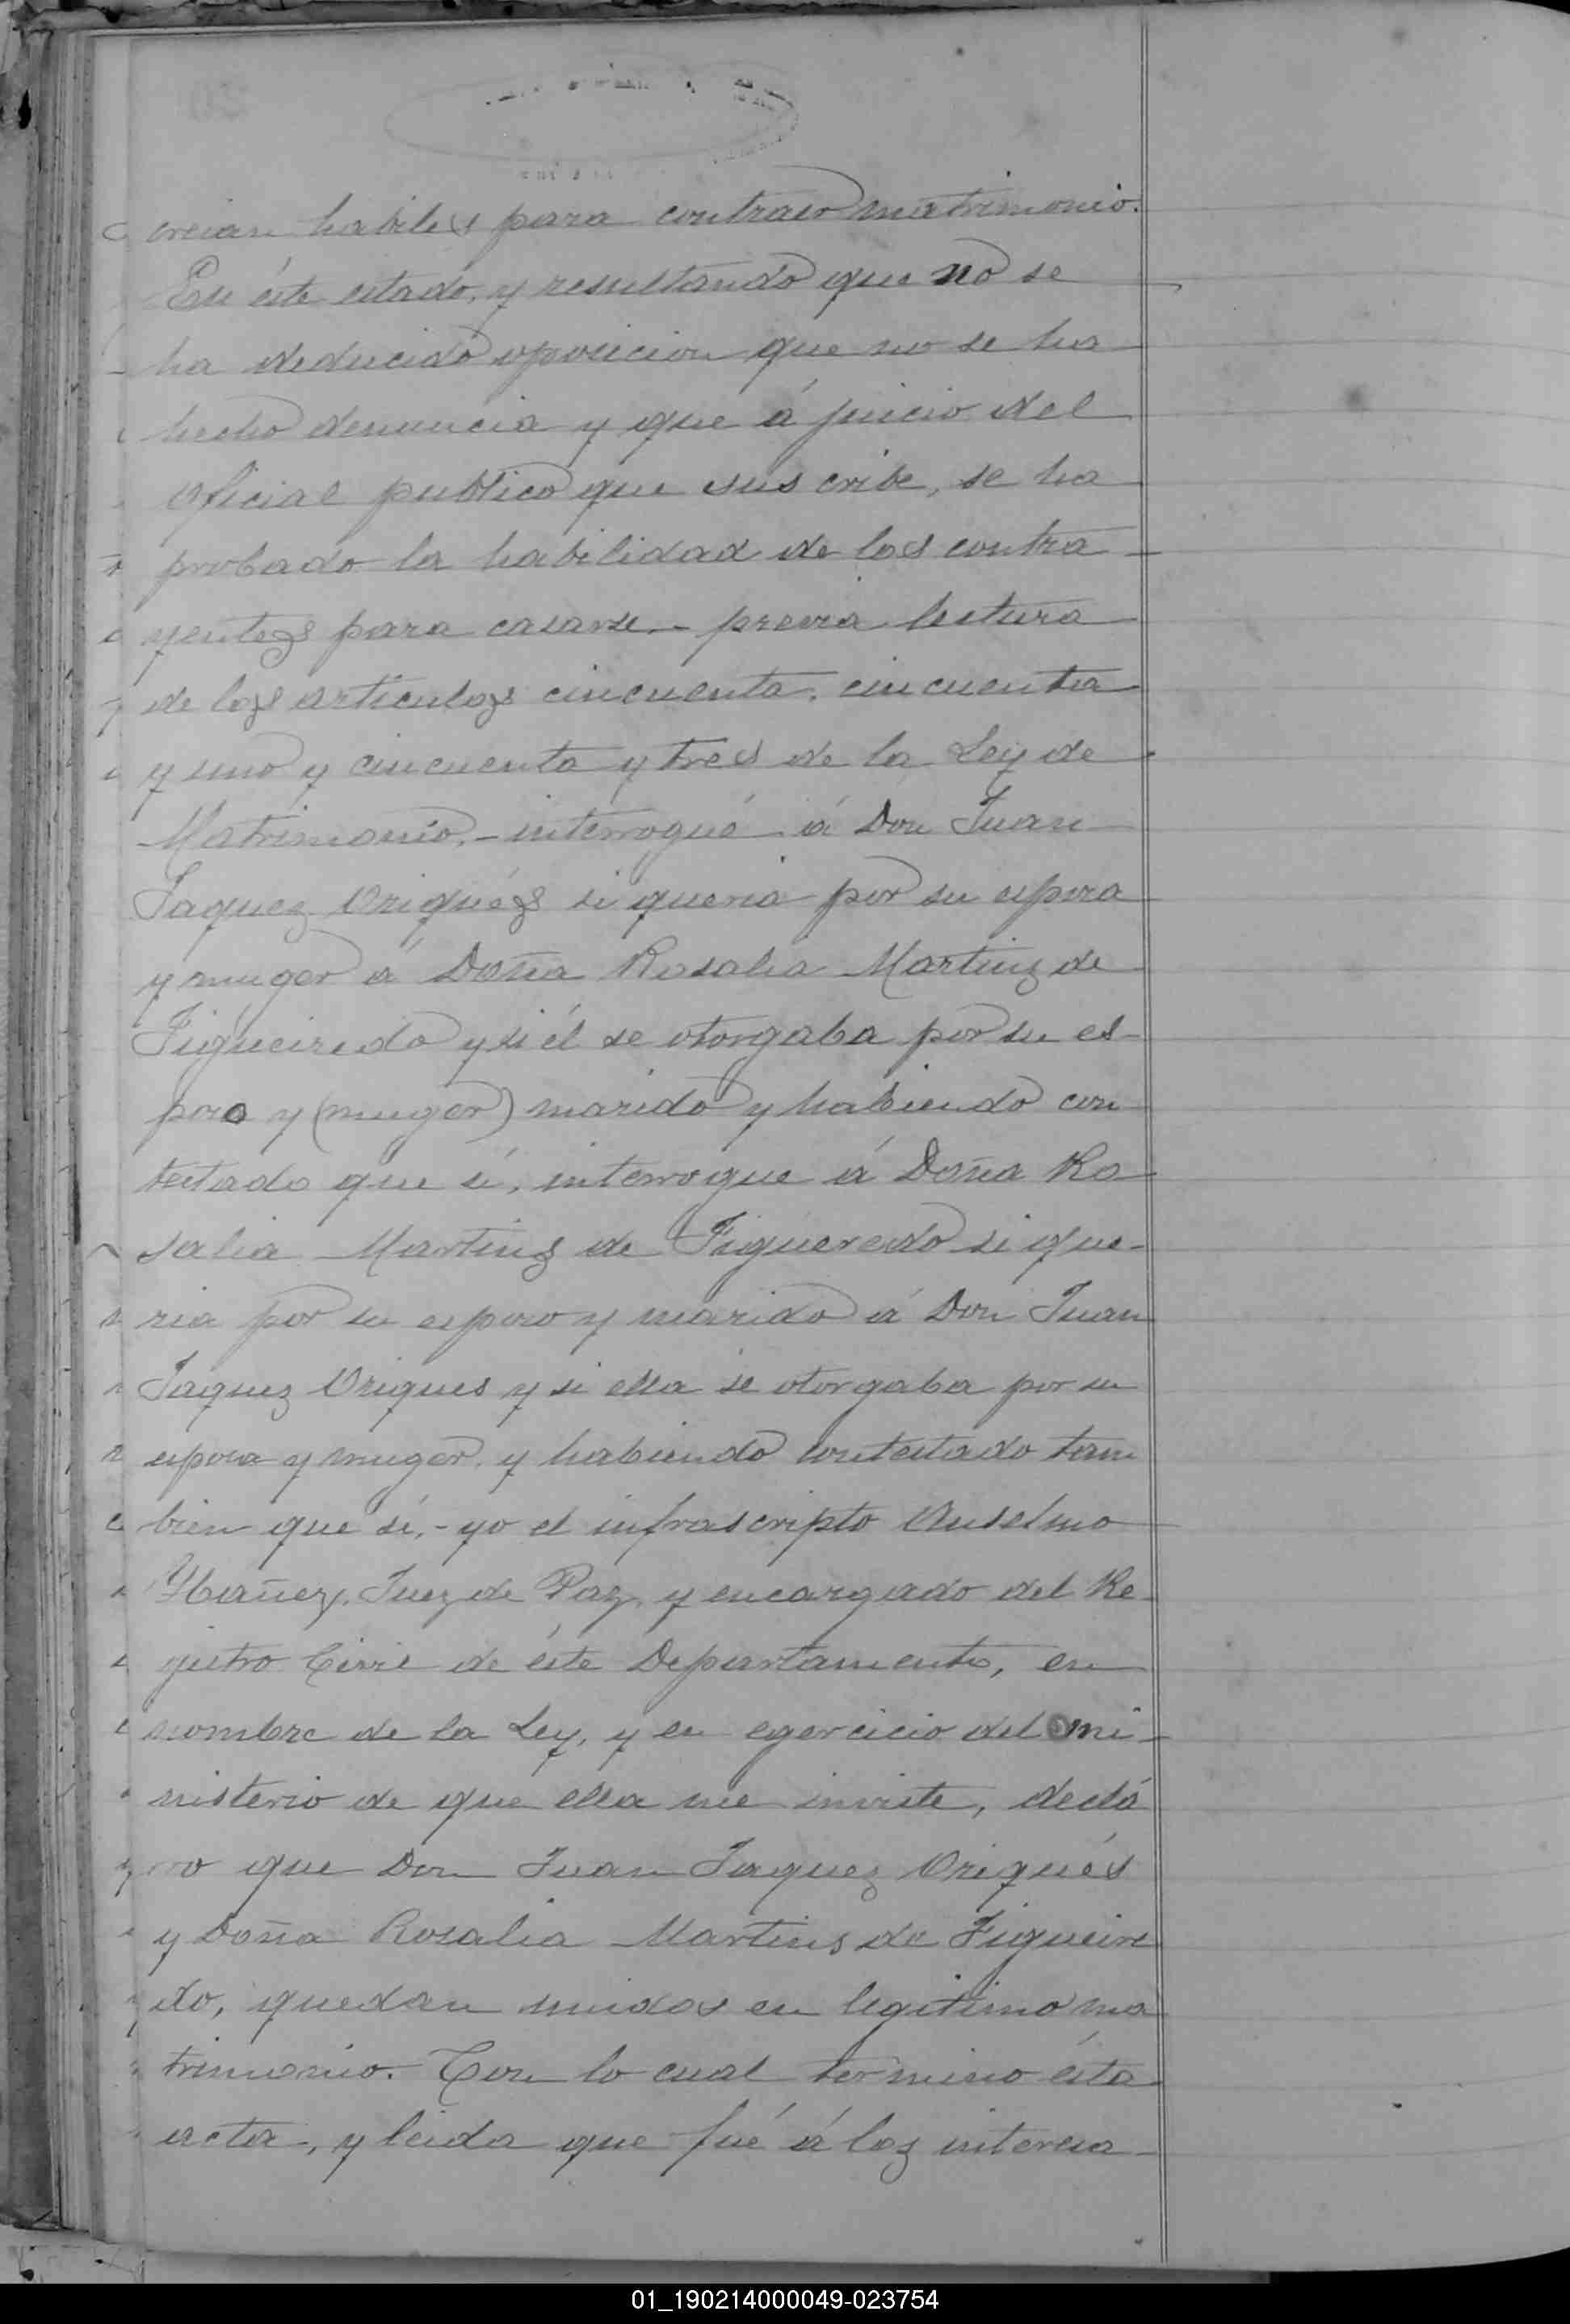 creian habiles para contraer matrimonio.
En éste estado, y resultando que no se
ha deducido oposicion que no se ha
hecho denuncia y que á juicio del
oficial publico que suscribe, se ha
probado la habilidad de los contra
yentes para casarse.- previa lectura
de los articulos cincuenta, cincuenta
y uno y cincuenta y tres de la Ley de
Matrimonio,- interrogué á Don Juan
Jaquez Oriqués si queria por su esposa
y muger á Doña Rosalia Martins de
Figueiredo y si él se otorgaba por su es-
poso y (muger) marido y habiendo con
testado que si, interrogue á Doña Ro-
salia Martins de Figueredo si que-
ria por su esposo y marido á Don Juan
Jaquez Oriques y si ella se otorgaba por su
esposa y muger, y habiendo contestado tam
bien que sí,- yo el infrascripto Anselmo
Ybañez, Juez de Paz, y encargado del Re-
jistro Civil de éste Departamento, en
nombre de la Ley, y en egercicio del mi-
nisterio de que ella me inviste, declá
ro que Don Juan Jaquez Oriqués
y Doña Rosalia Martins de Figueire
do, quedan unidos en legitimo ma
trimonio. Con lo cual termino ésta
acta, y leida que fué á los interesa
01_190214000049-023754